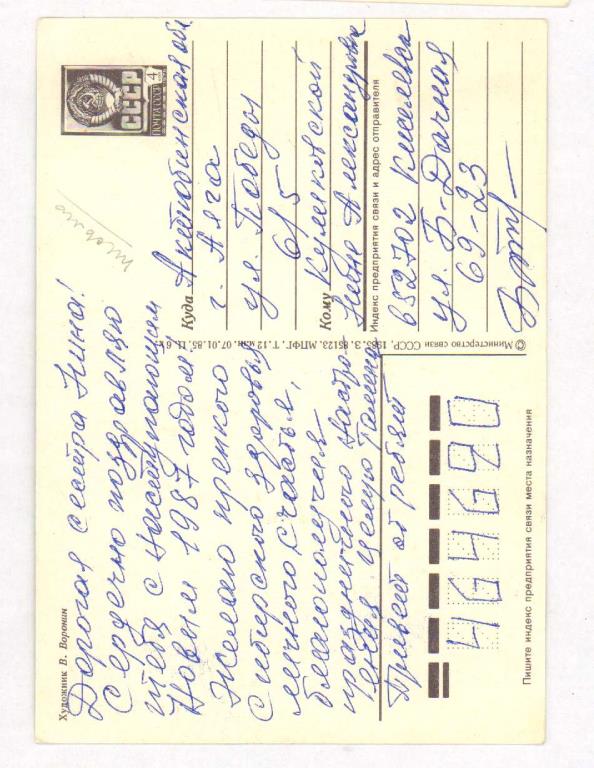 Художник В. Воронин
Дорогая сестра Нина!
Сердечно поздравляю
тебя с наступающим
Новым 1987 годом
Желаю крепкого
Сибирского здоровья
личного счастья,
благополучия
праздничного настро-
ения целую
Привет от ребят
СССР
ПОЧТА СССР
4
Куда Актюбинская обл
г. Алга
ул. Победы
61 5
Кому Куликовской
Нине Александровне
Индекс предприятия связи и адрес отправителя
652702 Киселевск
ул. Б-Дачная
69-23
© Министерство связи СССР, 1985. З. 85123. МПФГ. Т. 12 млн. 07.01.85. Ц. 6 к.
464690
Пишите индекс предприятия связи места назначения